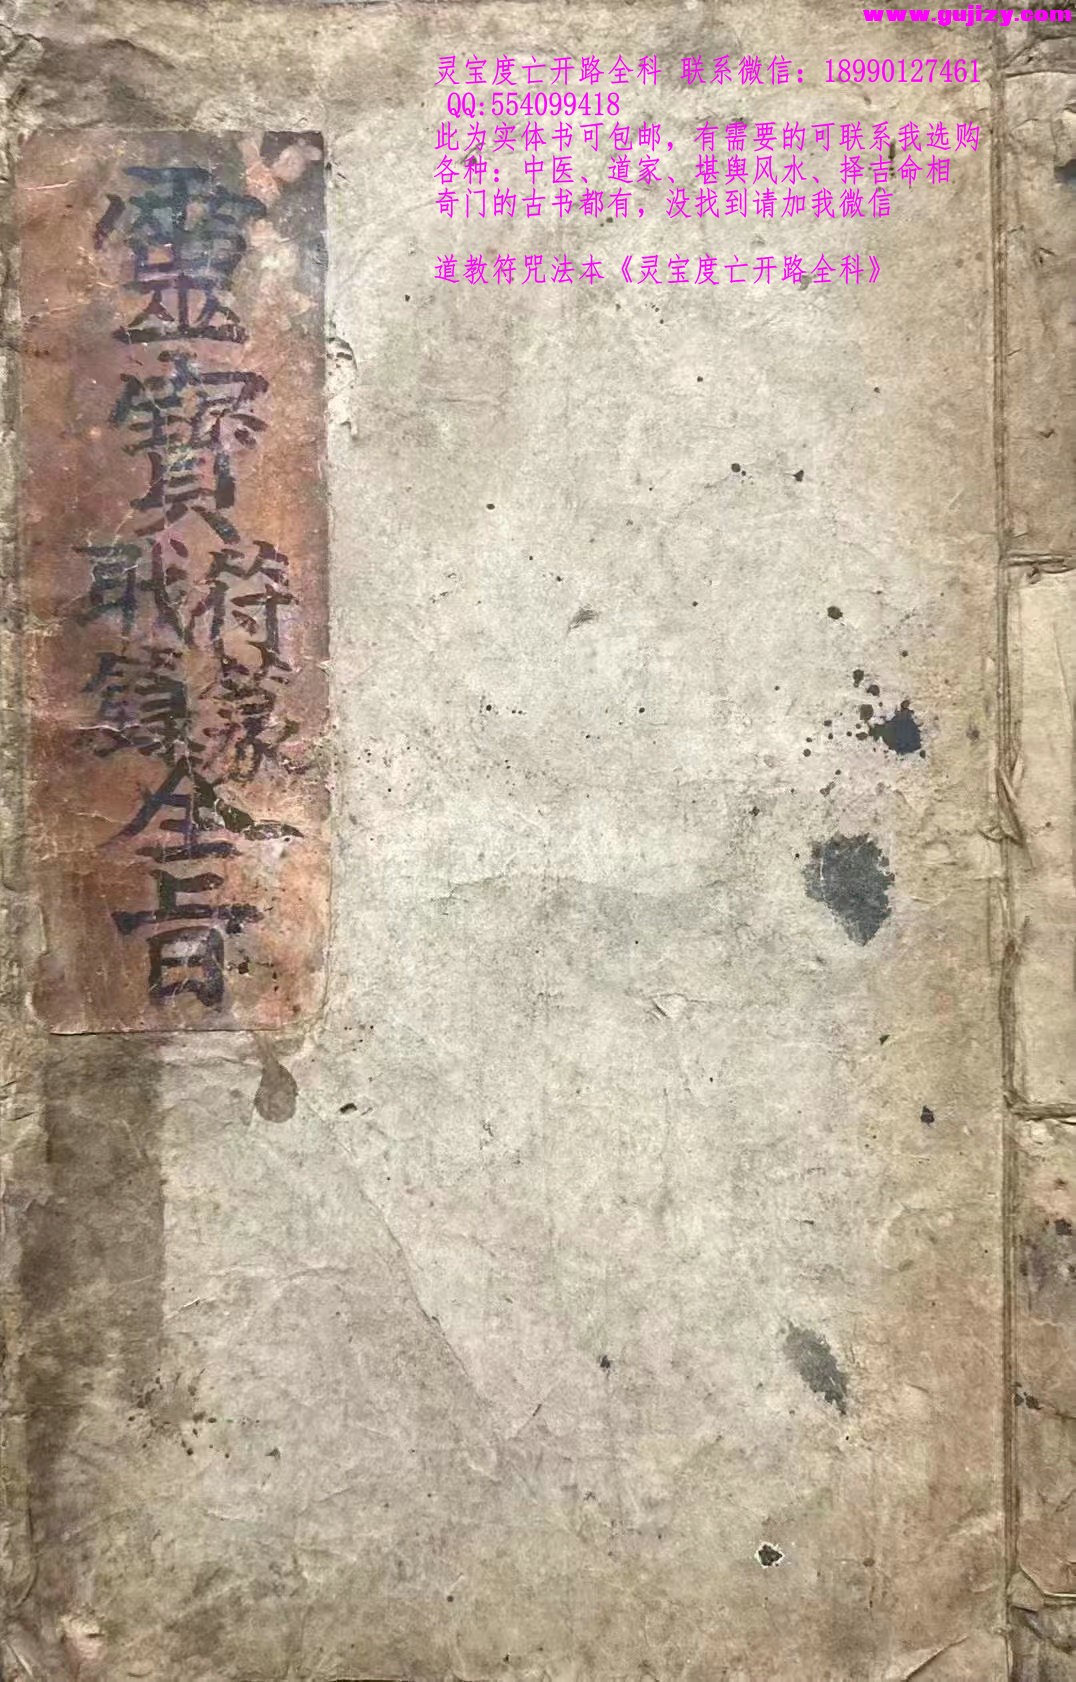 www.gujizy.com
灵宝度亡开路全科 联系微信：18990127461
QQ:554099418
此为实体书可包邮，有需要的可联系我选购
各种：中医、道家、堪舆风水、择吉命相
奇门的古书都有，没找到请加我微信
道教符咒法本《灵宝度亡开路全科》
靈寶
符篆
職籙
全旨